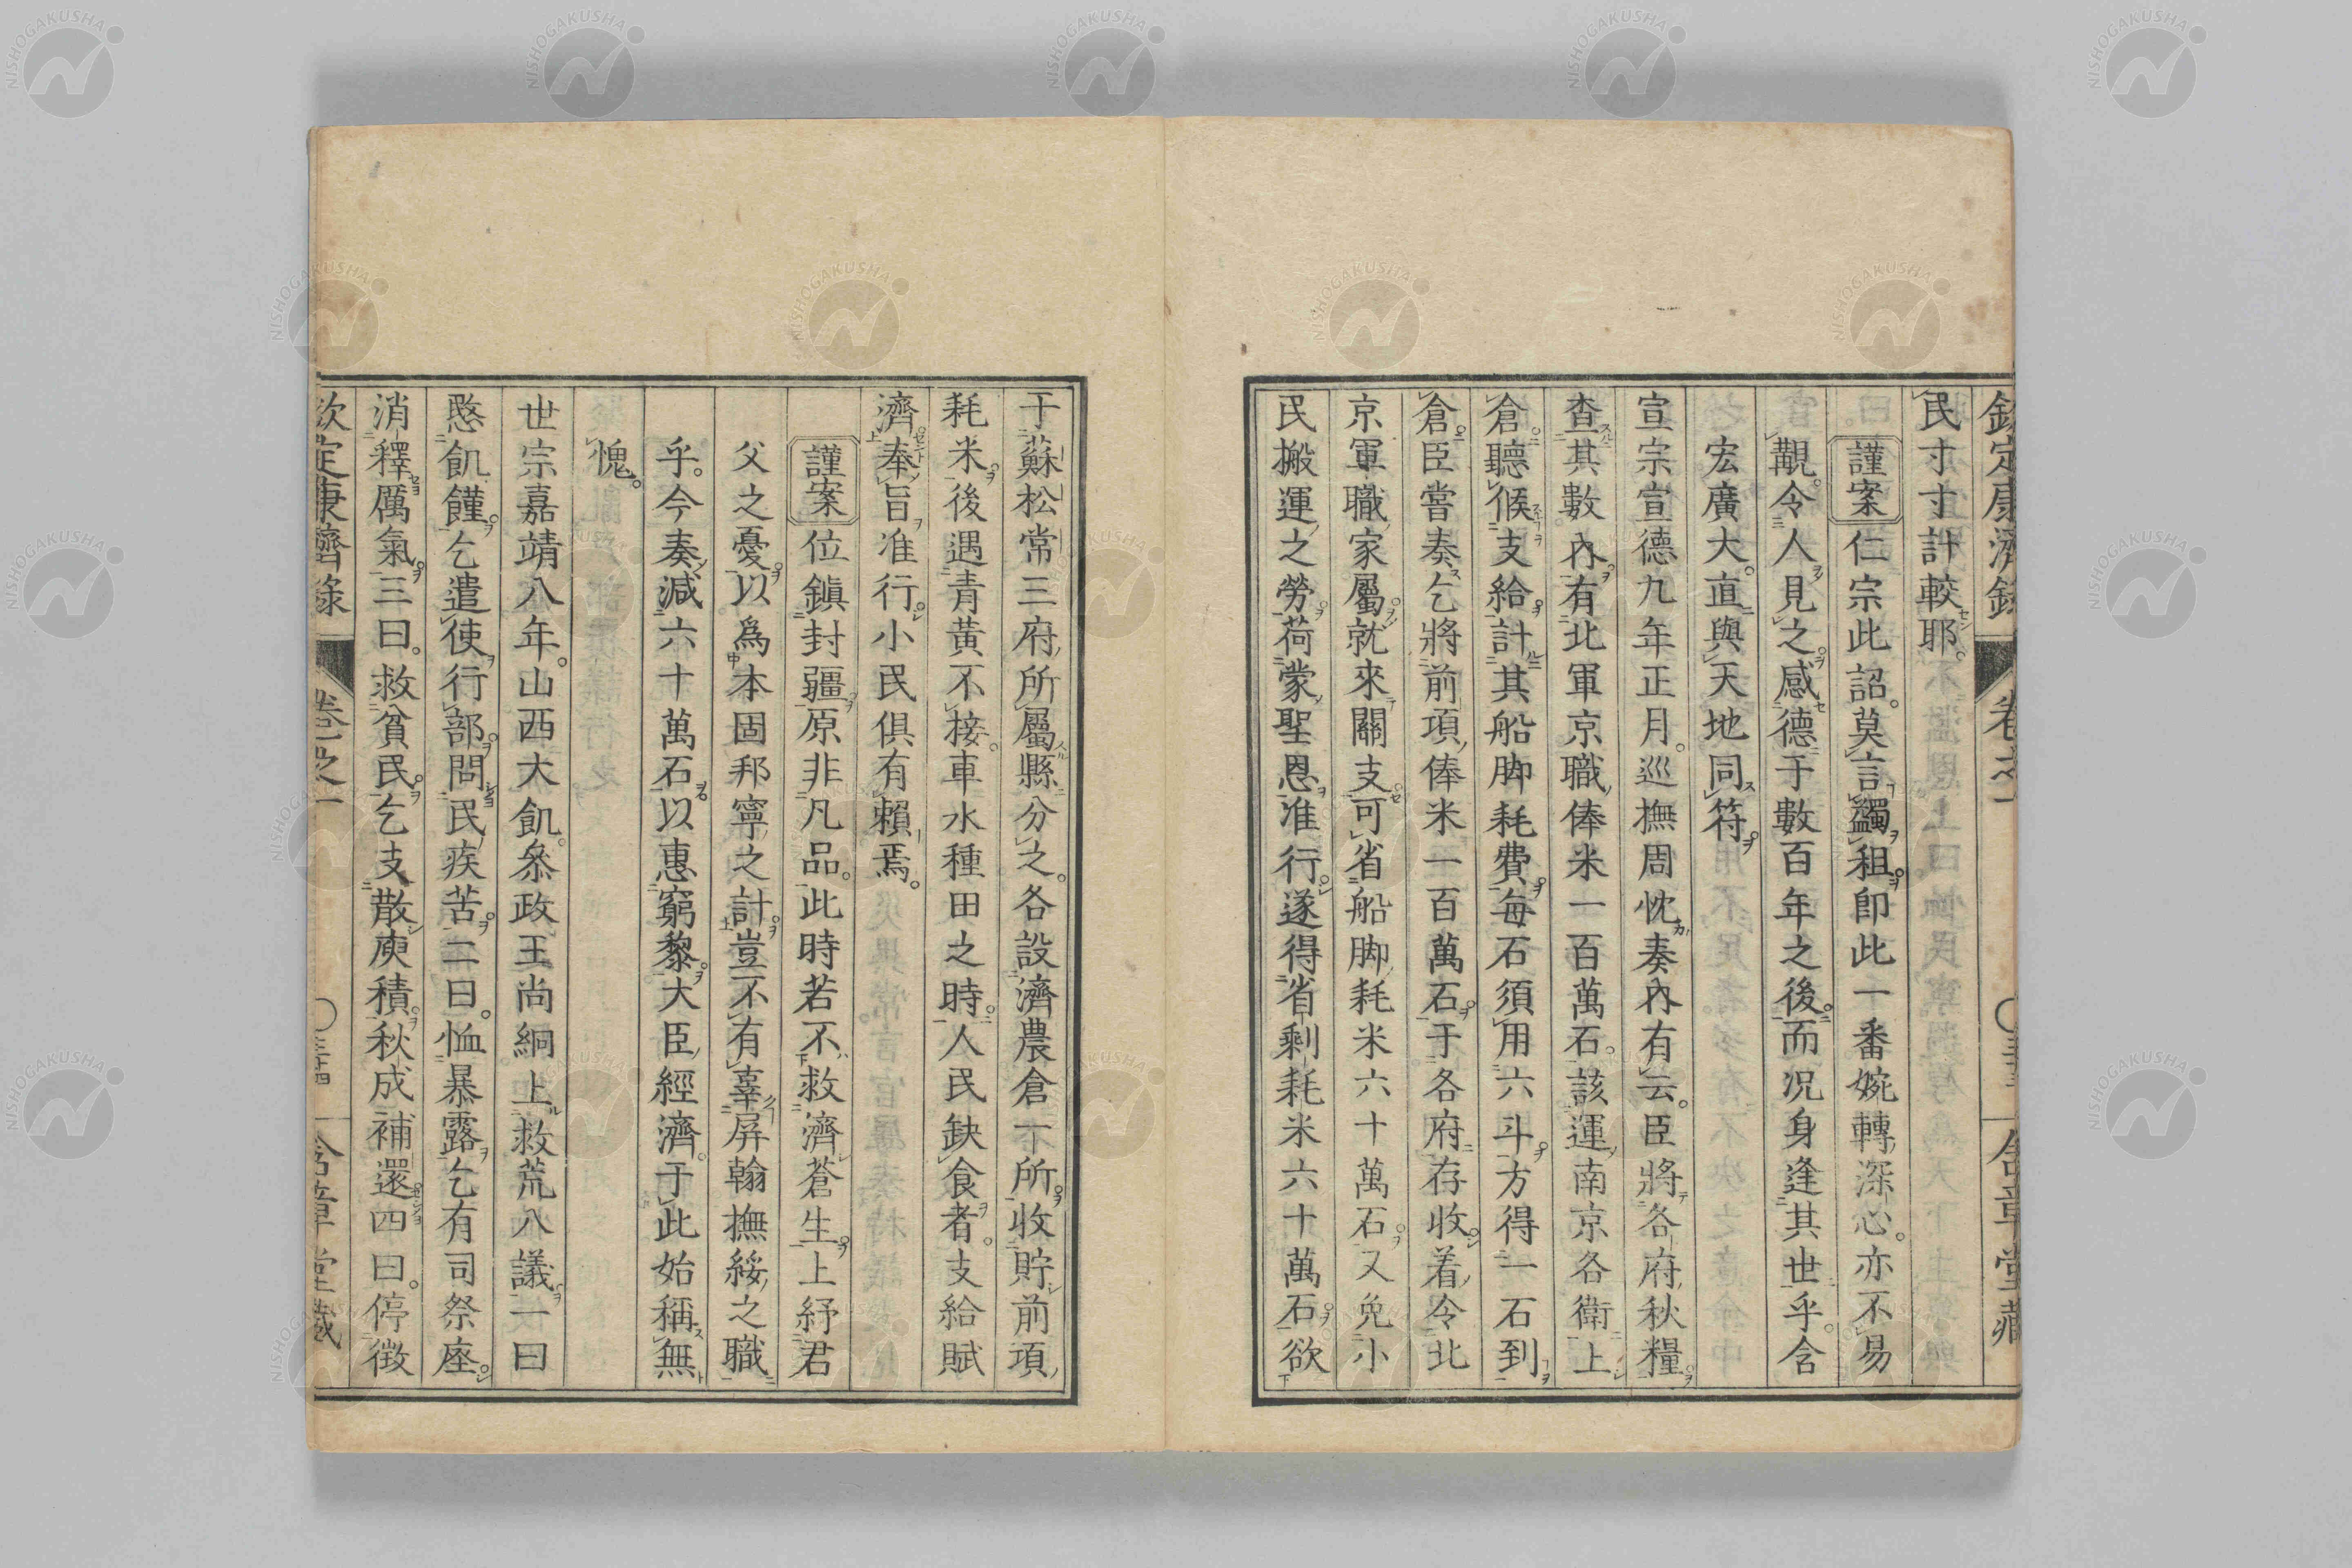 欽定康濟錄 卷之一 含章堂藏
民寸寸計較耶。
謹案仁宗此詔。莫言蠲租。即此一番婉轉深心。亦不易
覯。令人見之感德于數百年之後。而況身逢其世乎。含
宏廣大。直與天地同符。
宣宗宣德九年正月。巡撫周忱奏內有云。臣將各府秋糧
查其數內有北軍京職俸米一百萬石。該運南京各衛上
倉。聽候支給。計其船脚耗費。每石須用六斗。方得一石到
倉。臣嘗奏乞將前項俸米一百萬石。于各府存收着令北
京軍職家屬就來關支。可省船脚耗米六十萬石。又免小
民搬運之勞。荷蒙聖恩准行。遂得省剩耗米六十萬石。欲
于蘇松常三府所屬縣分之。各設濟農倉一所。收貯前項
耗米。後遇青黃不接。車水種田之時。人民缺食者。支給賑
濟。奉旨准行。小民俱有賴焉。
謹案位鎭封疆。原非凡品。此時若不救濟蒼生。上紓君
父之憂。以爲本固邦寧之計。豈不有辜屏翰撫綏之職
乎。今奏減六十萬石。以惠窮黎。大臣經濟。于此始稱無
愧。
世宗嘉靖八年。山西大飢。叅政王尚絅上救荒八議。一曰
愍飢饉。乞遣使行部。問民疾苦。二曰。恤暴露。乞有司祭座。
消釋厲氣。三曰。救貧民。乞支散庾積。秋成補還。四曰。停徵
欽定康濟錄 卷之一 三十四 含章堂藏